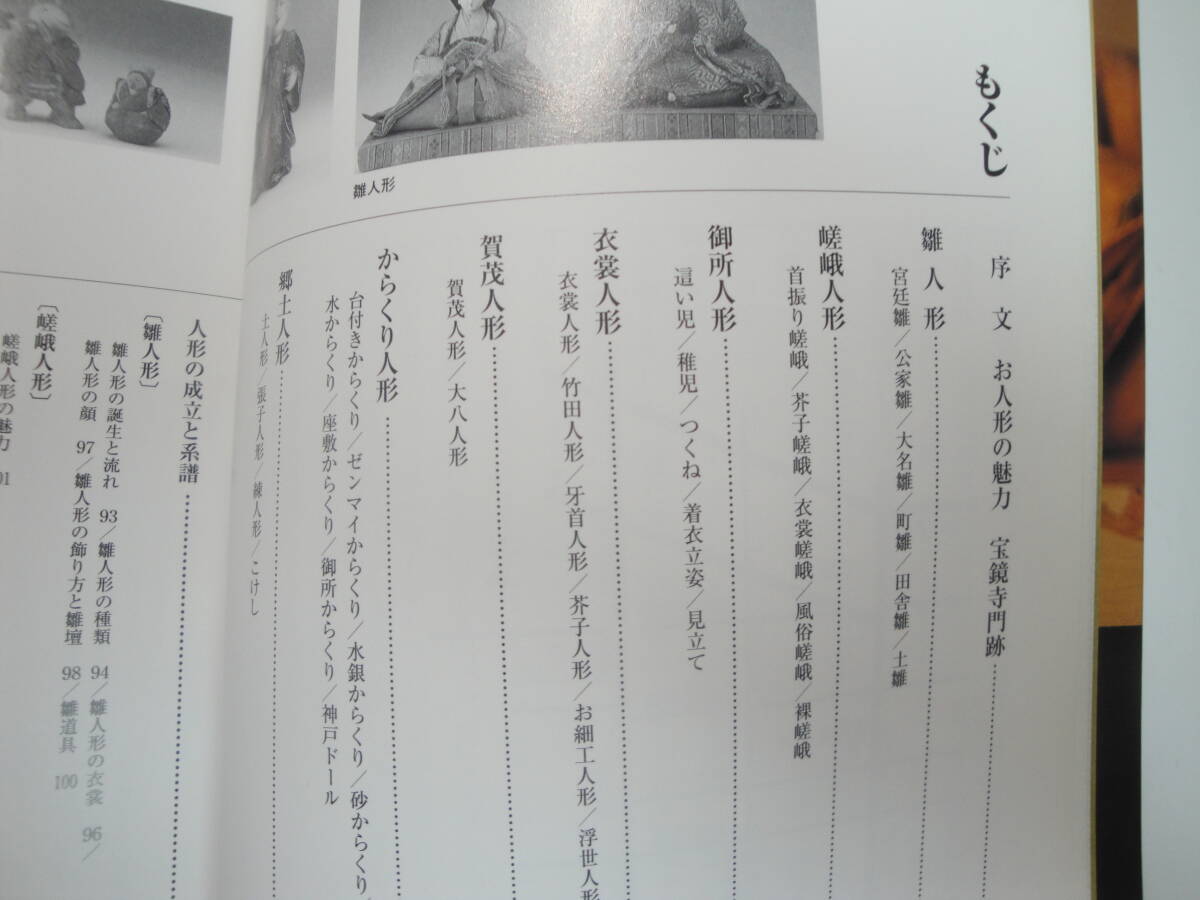 もくじ
序文 お人形の魅力 宝鏡寺門跡
雛人形
宮廷雛／公家雛／大名雛／町雛／田舎雛／土雛
嵯峨人形
首振り嵯峨／芥子嵯峨／衣裳嵯峨／風俗嵯峨／裸嵯峨
御所人形
這い児／稚児／つくね／着衣立姿／見立て
衣裳人形
衣裳人形／竹田人形／牙首人形／芥子人形／お細工人形／浮世人形
賀茂人形
賀茂人形／大八人形
からくり人形
台付きからくり／ゼンマイからくり／水銀からくり／砂からくり／
水からくり／座敷からくり／御所からくり／神戸ドール
郷土人形
土人形／張子人形／練人形／こけし
雛人形
人形の成立と系譜
〔雛人形〕
雛人形の誕生と流れ 93／雛人形の種類 94／雛人形の衣裳 96／
雛人形の顔 97／雛人形の飾り方と雛壇 98／雛道具 100
〔嵯峨人形〕
嵯峨人形の魅力 01